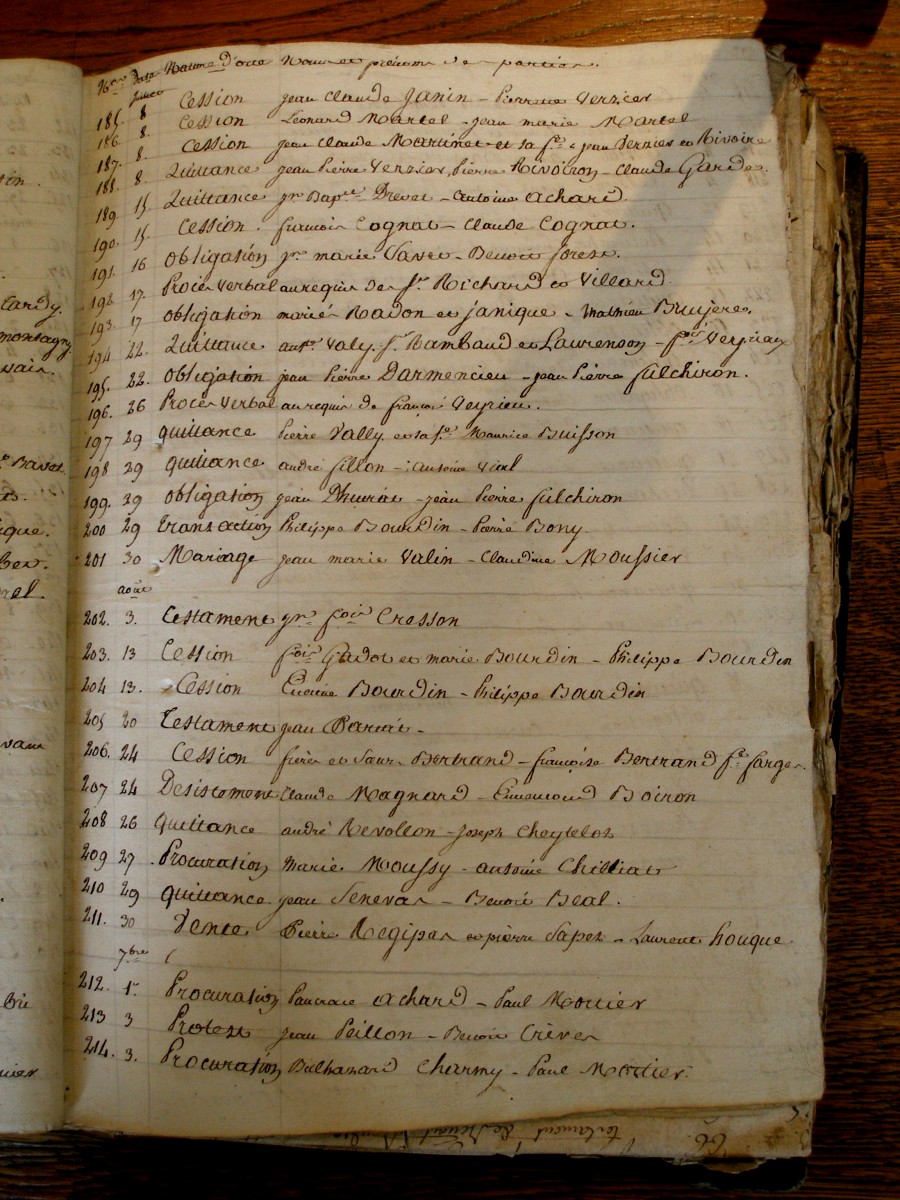 Nos Date Nature D'acte Noms et prénoms des parties.
Juillet
185. 8 Cession jean Claude Janin - Pierrette Verzier
186. 8. Cession Léonard Martel - jean marie Martel
187. 8. Cession jean Claude Martinet et sa fe - jean Verniés et Rivoire
188. 8. Quittance jean Pierre Verzier, Pierre Rivoiron - Claude Gardes.
189. 15 Quittance jn Bapte Drevet - Antoine Achard.
190. 15. Cession. françois Cognat - Claude Cognat.
191. 16 Obligation jn marie Vavet - Benoit forest.
192. 17. Procès Verbal au requis de Sr Richard et Villard
193. 17 Obligation mariés Radon et janique - Mathieu Bruyeres.
194 22. Quittance antne Valy, Sr Rambaud et Laurenson - fçois Veyriaux
195. 22. Obligation jean Pierre Darmencieu - jean Pierre fulchiron.
196. 26 Procès Verbal au requis de françois Veyrieu.
197 29 quittance Pierre Vally et sa fe Maurice Buisson
198 29 quittance andré fillon - antoine Vial
199. 29 Obligation jean Dhurat - jean Pierre fulchiron
200 29 transaction Philippe Bourdin - Pierre Bony
201 30 Mariage jean marie Valin - Claudine Moussier
août
202. 3. testament jne fçois Cresson
203. 13 Cession fçois Gadot et marie Bourdin - Philippe Bourdin
204 13. Cession Etienne Bourdin - Philippe Bourdin
205 20 Testament jean
206. 24 Cession frères et Sœurs Bertrand - françoise Bertrand fe farges.
207 24 Desistement Claude Magnard - Ennemond Boiron
208 26 quittance andré Revollon - joseph Cheytelot
209 27. Procuration marie Moussy - antoine Chilliat
210 29 quittance jean Seneval - Benoit Béal.
211. 30 Vente Pierre Regipas et pierre Sapet - Laurent houque
7bre
212. 1er Procuration Pancrace Achard - Paul Mortier
213 3 Protest jean Peillon - Benoit Crével
214. 3. Procuration Balthazard Charmy - Paul Mortier.